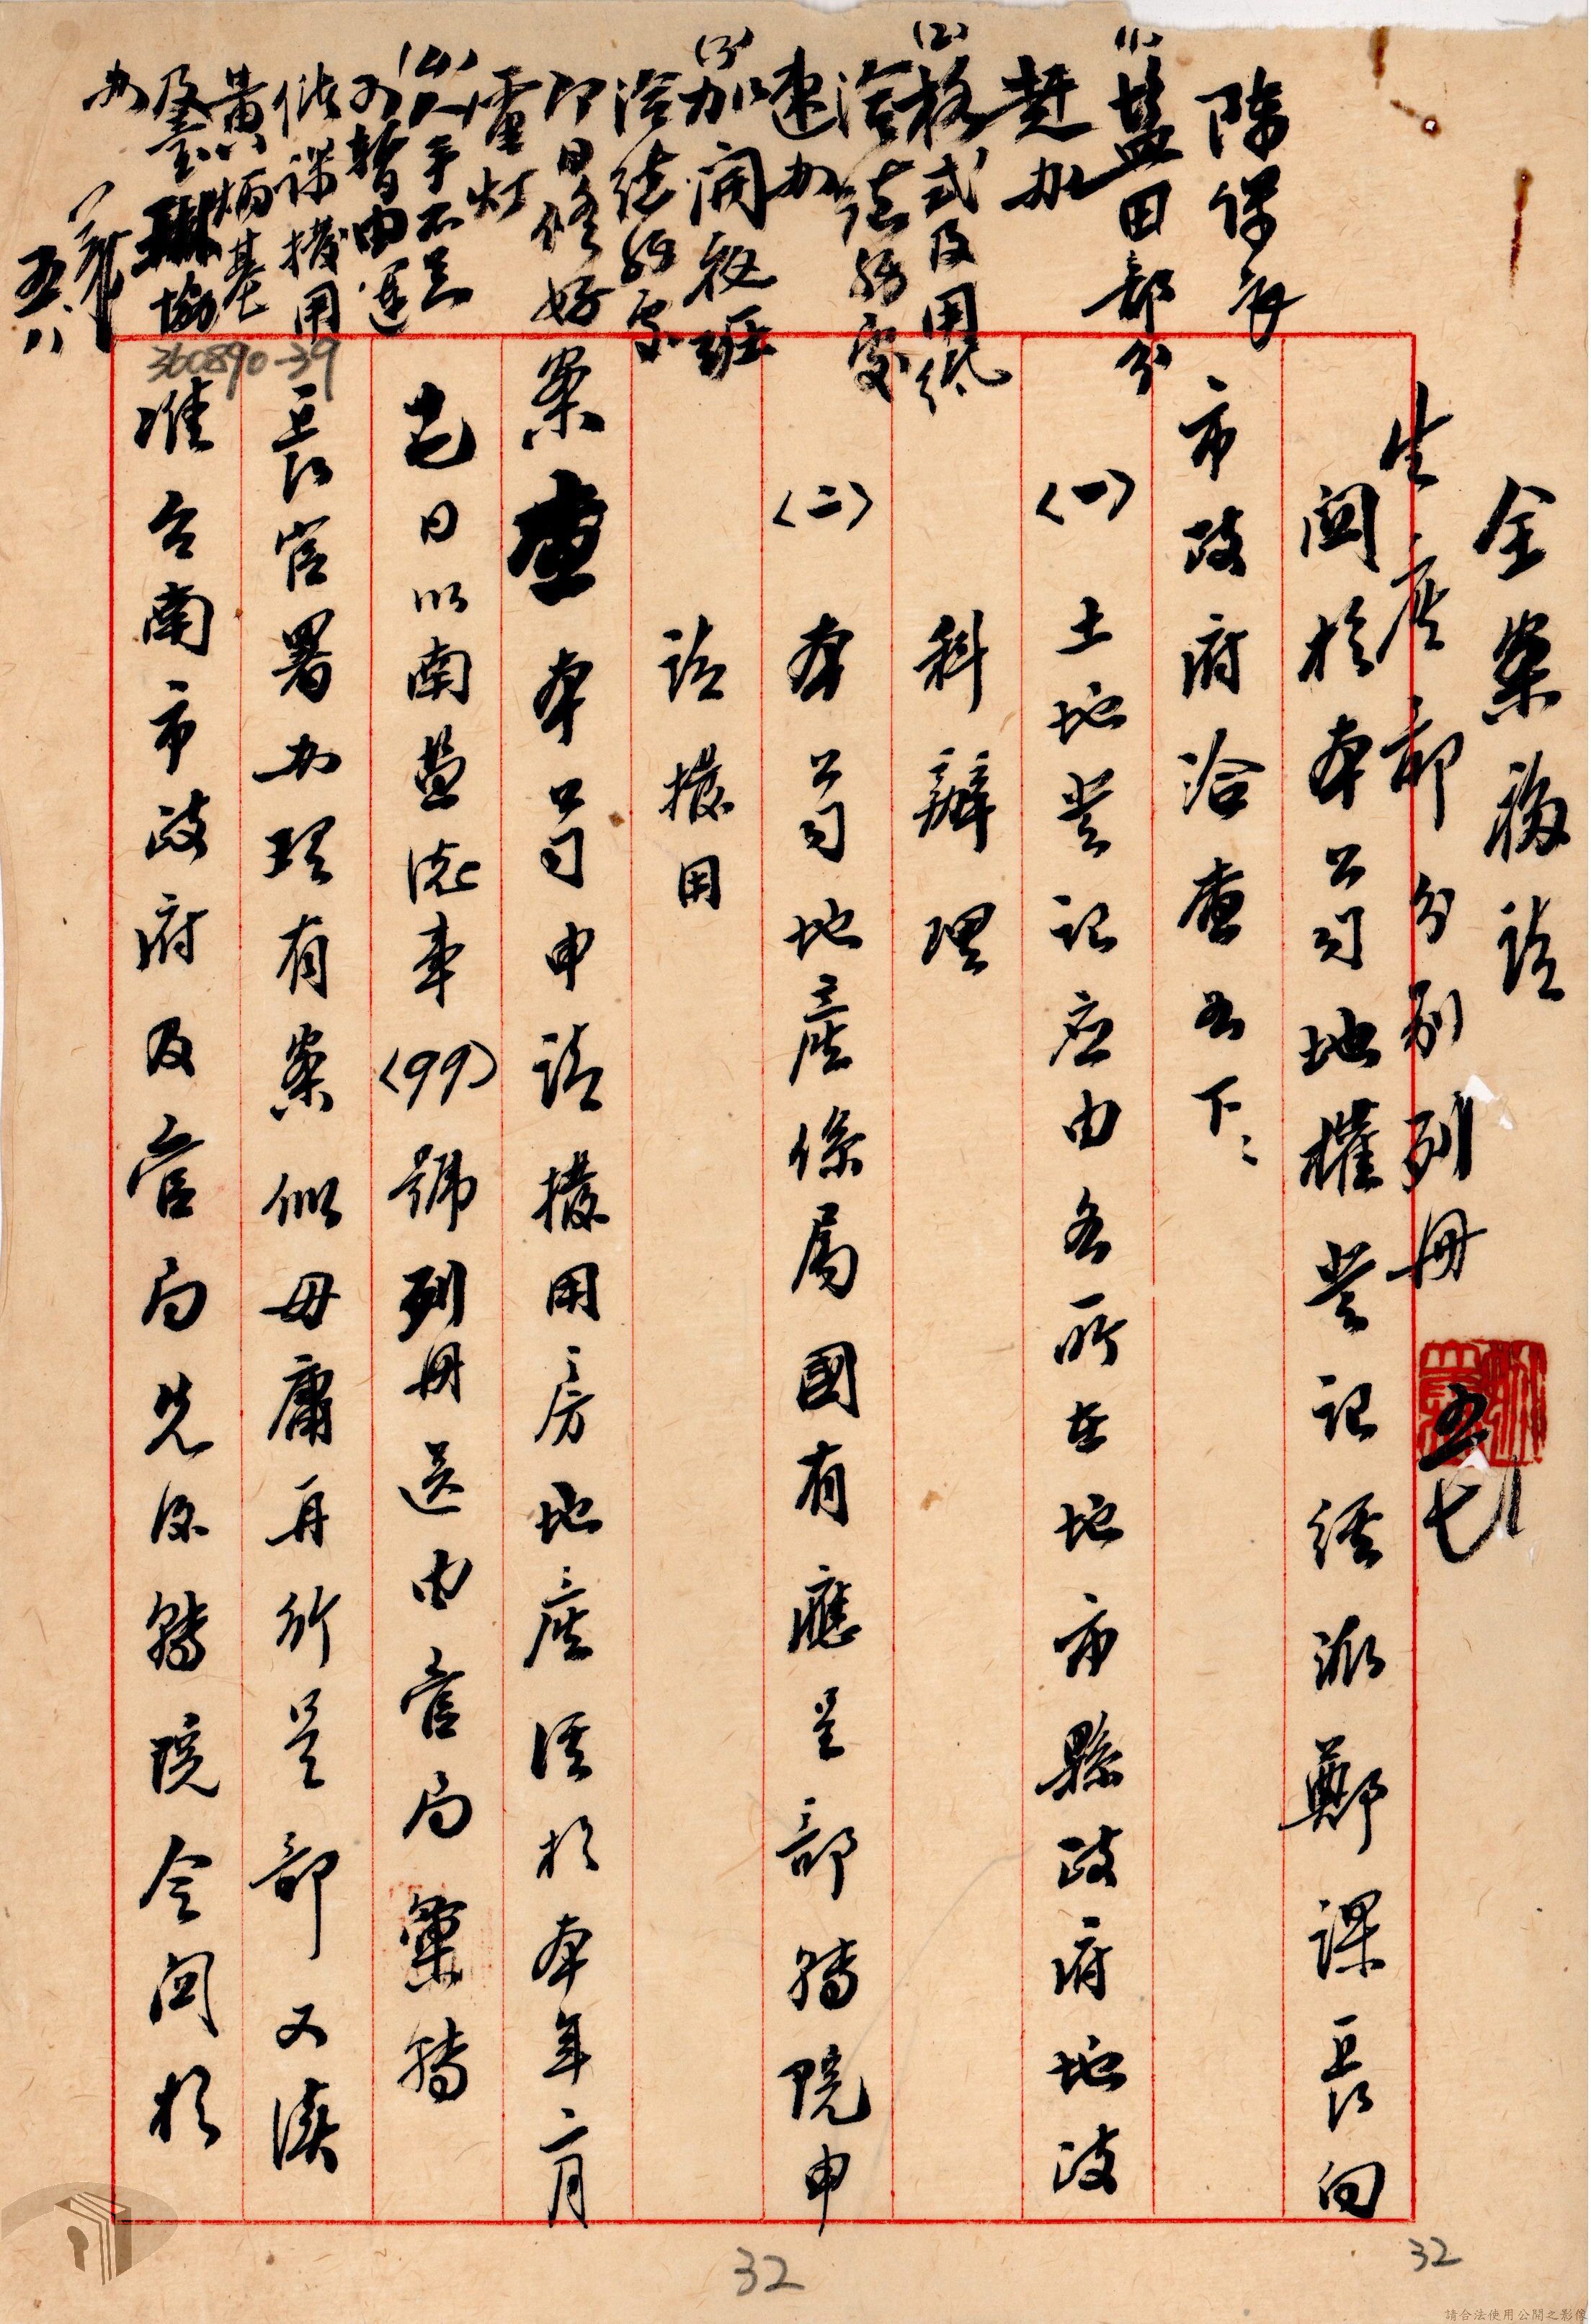 全案移請
生產部分別列冊
五七
關於本公司地權登記經派鄭課長向
市政府洽查如下：
〈一〉土地登记应由各所在地市縣政府地政
科辦理
〈二〉本公司地產係屬國有應呈部轉院申
請撥用
案查本公司申請撥用房地產經於本年二月
七日以南鹽總車〈99〉號列冊送由管局彙轉
長官署办理有案似毋庸再行呈部又續
准台南市政府及管局先後轉院令関於
陳課長
(1)鹽田部分
趕办
(2)格式及用紙
洽請総務處
速办
(3)加開夜班
洽請総務處
即日修好
電灯
(4)人手不足
可暫由運
儲課撥用
黃炳基
及 協
办
五八
360890-39
32
32
請合法使用公開之影像